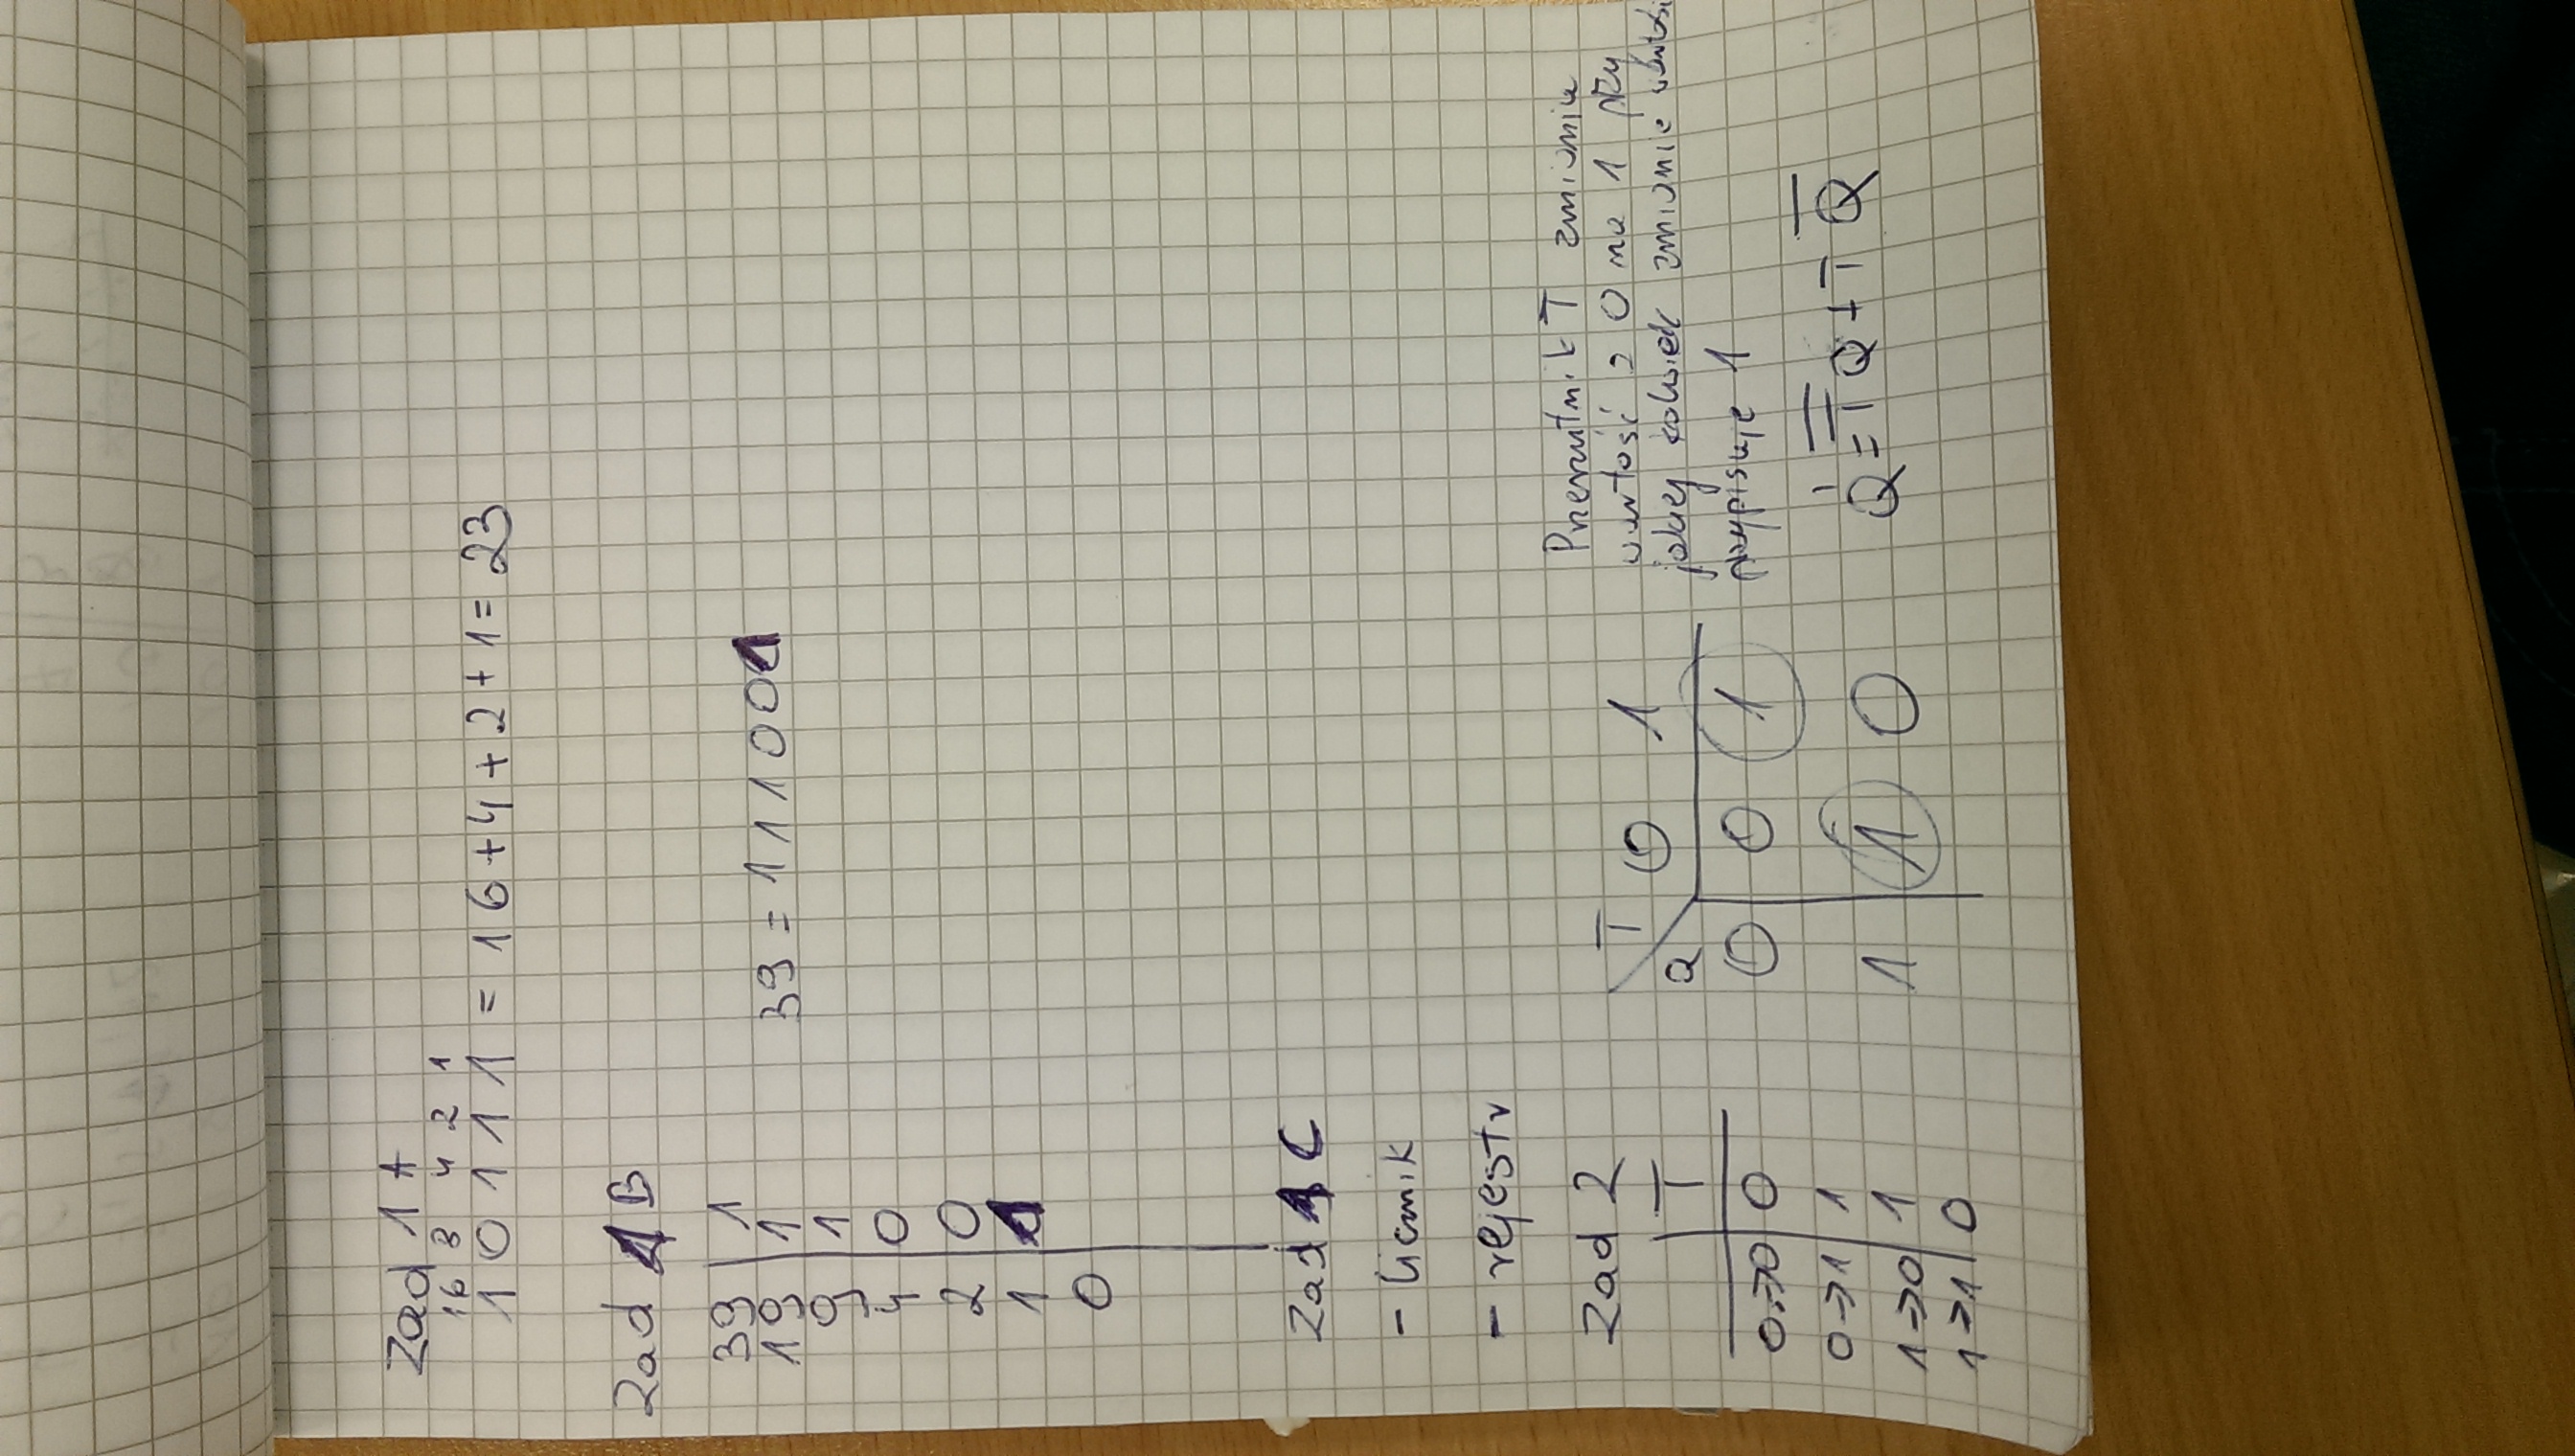 Zad 1 A
16 8 4 2 1
1 0 1 1 1 = 16+4+2+1= 23
Zad 1 B
39 | 1
19 | 1
39 = 111001
9 | 1
4 | 0
2 | 0
1 | 1
0
Zad 1 C
- licznik
- rejestr
Zad 2
T
0→0 | 0
0→1 | 1
1→0 | 1
1→1 | 0
T 0 1
Q
0 0 1
1 1 0
Przerzutnik T zmienia
wartość z 0 na 1 przy
jakiej kolwiek zmianie wartości
przypisuje 1
Q' = T̅Q + TQ̅